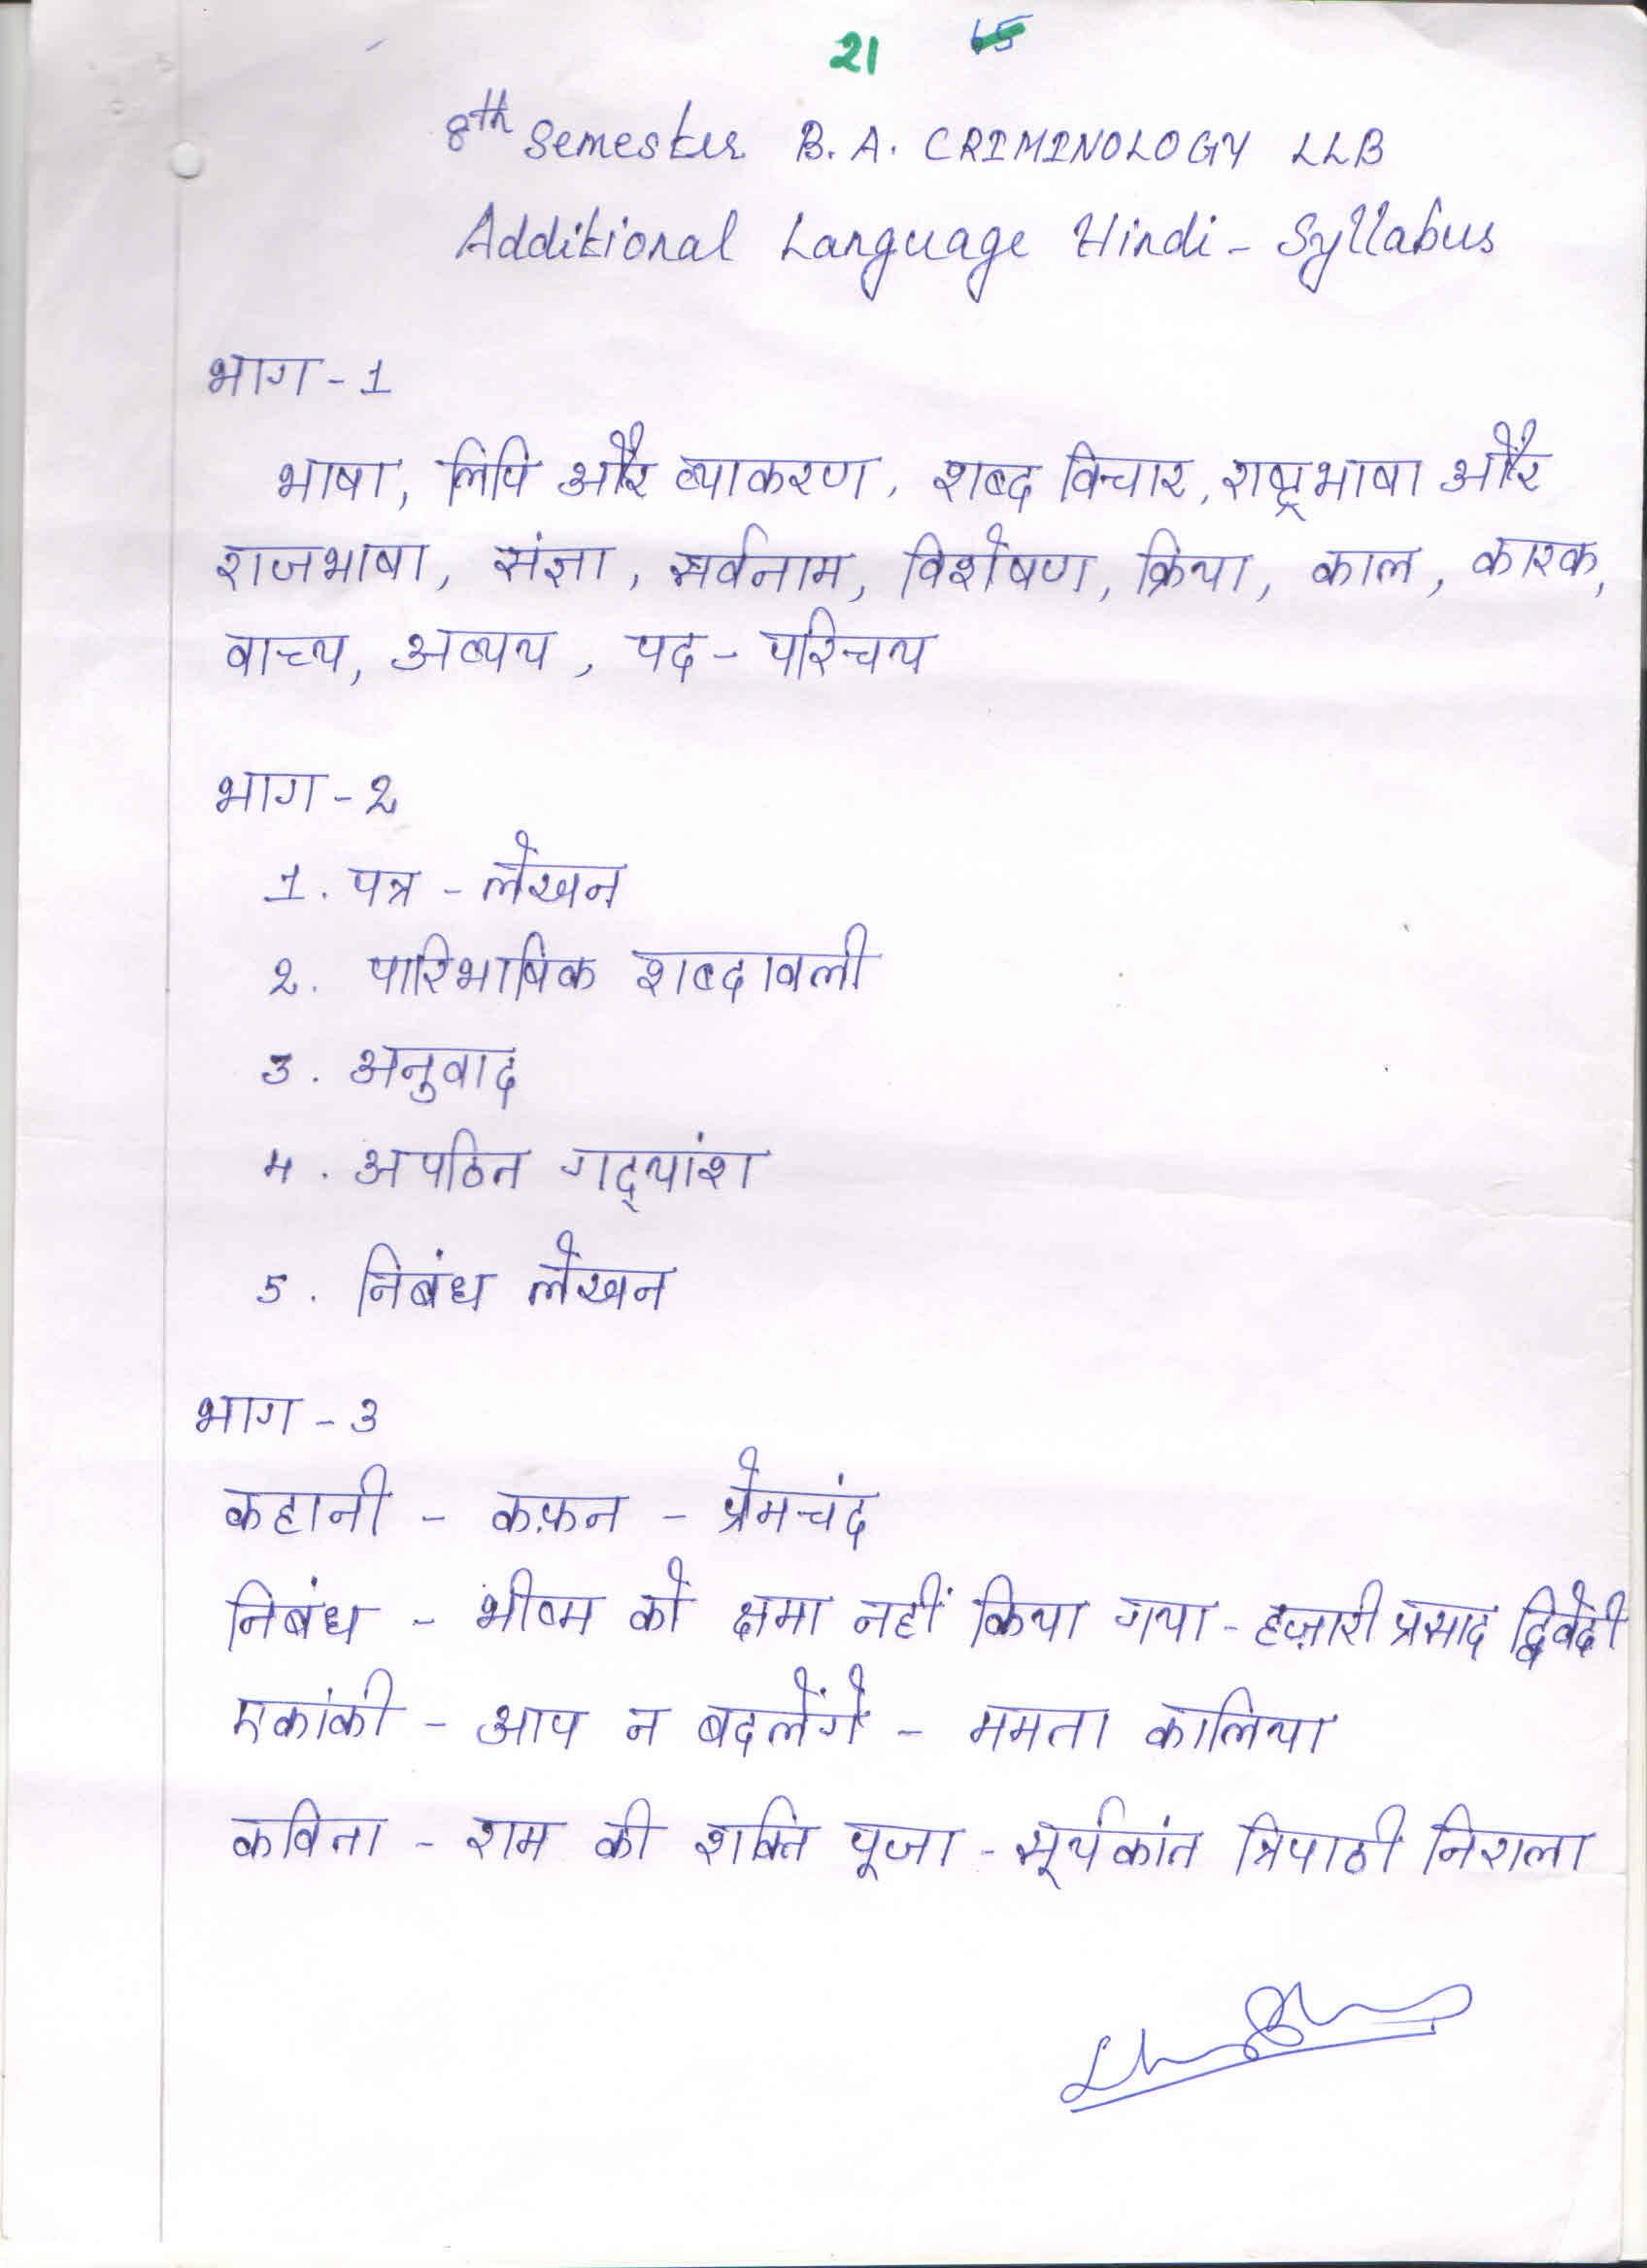 21 65
8th Semester B.A. CRIMINOLOGY LLB
Additional Language Hindi - Syllabus
भाग - 1
भाषा, लिपि और व्याकरण, शब्द विचार, राष्ट्रभाषा और
राजभाषा, संज्ञा, सर्वनाम, विशेषण, क्रिया, काल, कारक,
वाच्य, अव्यय, पद - परिचय
भाग - 2
1. पत्र - लेखन
2. पारिभाषिक शब्दावली
3. अनुवाद
4. अपठित गद्यांश
5. निबंध लेखन
भाग - 3
कहानी - कफ़न - प्रेमचंद
निबंध - भीष्म को क्षमा नहीं किया गया - हज़ारी प्रसाद द्विवेदी
एकांकी - आप न बदलेंगे - ममता कालिया
कविता - राम की शक्ति पूजा - सूर्यकांत त्रिपाठी निराला